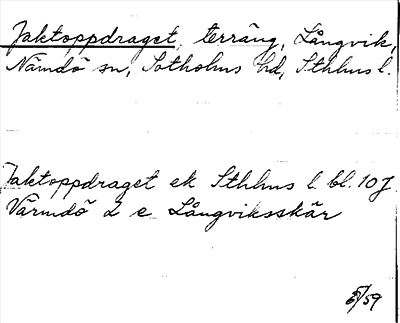 Jaktoppdraget, terräng, Långvik,
Nämdö sn, Sotholms hd, Sthlms l.
Jaktoppdraget ek Sthlms l. bl. 10 J
Värmdö 2 e Långviksskär
5/59